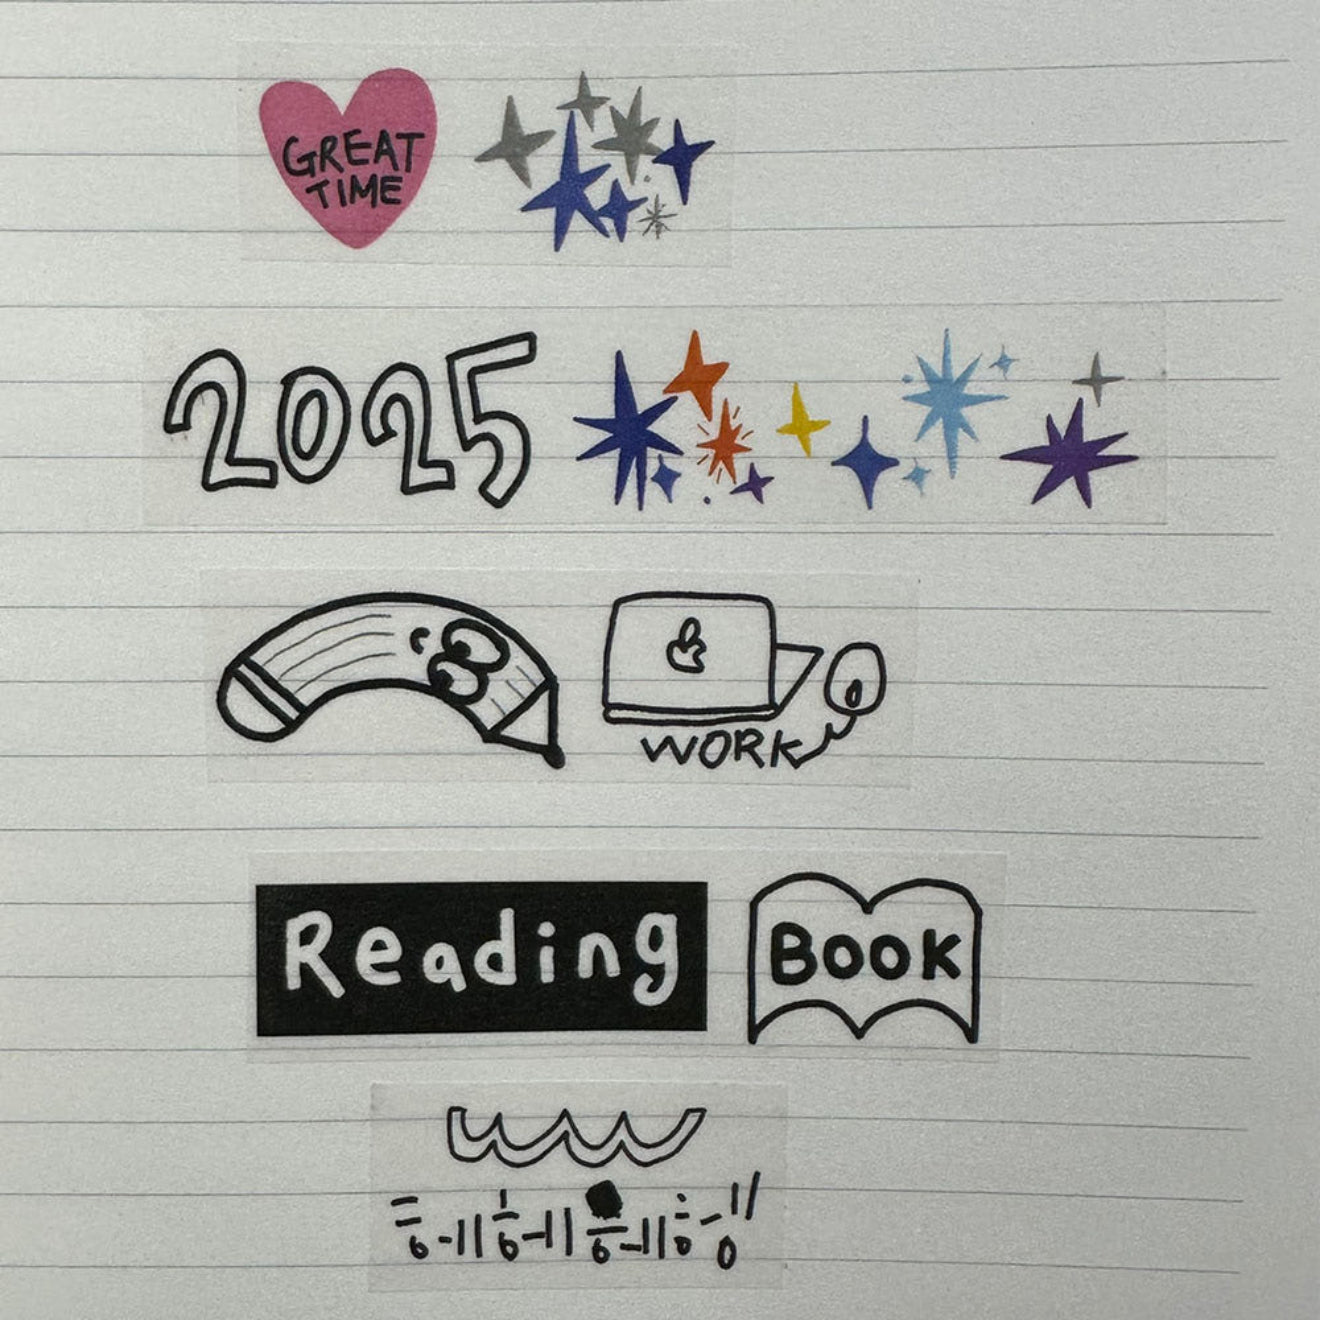 GREAT
TIME
2025
WORK
Reading
BOOK